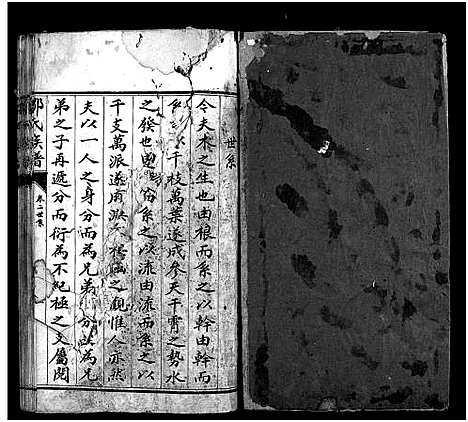 世系
令夫木之生也由根而系之以幹由幹而
千枝萬葉遂成參天干霄之勢水
之發也 系之以流由流而系之以
千支萬派遂有 之觀惟人亦然
夫以一人之身分而為兄弟 分 為兄
弟之子再遞分而衍為不紀極之支屬閱
氏族譜
卷二世系